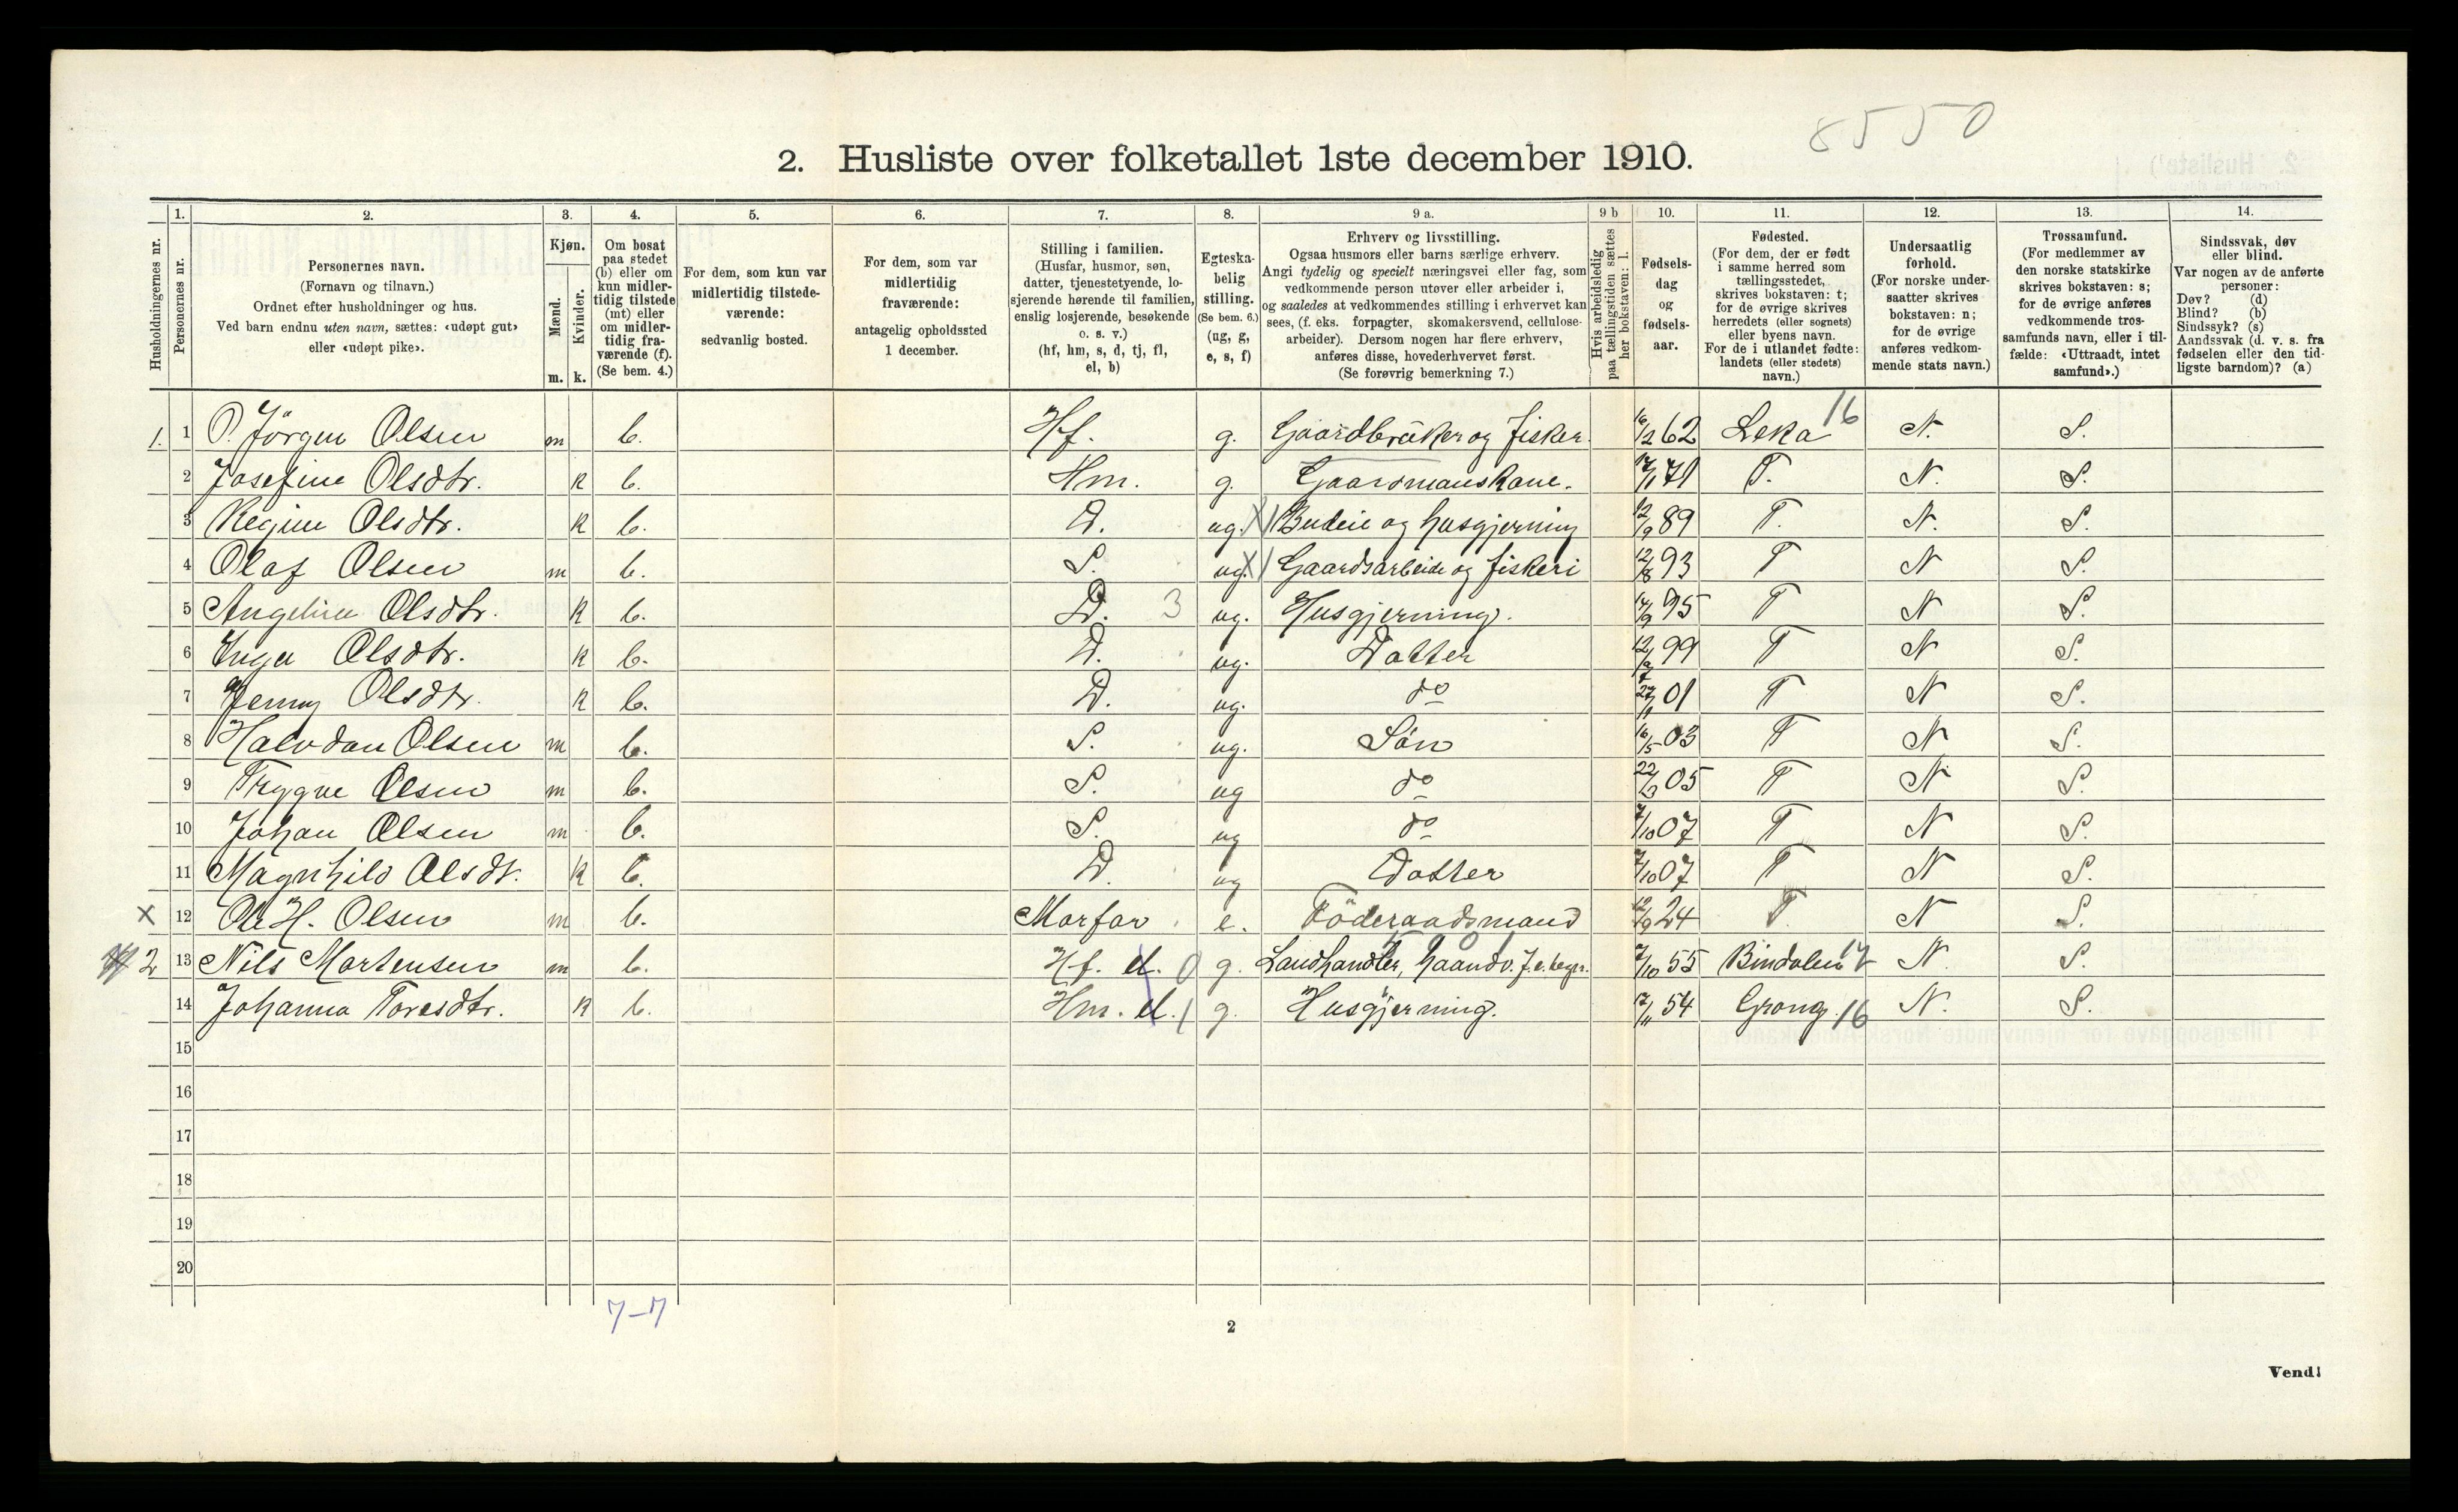 8550
2. Husliste over folketallet 1ste december 1910.
Husholdningernes nr.
1.
Personernes nr.
2.
Personernes navn.
(Fornavn og tilnavn.)
Ordnet efter husholdninger og hus.
Ved barn endnu uten navn, sættes: «udøpt gut»
eller «udøpt pike».
3.
Kjøn.
Mænd.
Kvinder.
m. k.
4.
Om bosat
paa stedet
(b) eller om
kun midler-
tidig tilstede
(mt) eller
om midler-
tidig fra-
værende (f).
(Se bem. 4.)
5.
For dem, som kun var
midlertidig tilstede-
værende:
sedvanlig bosted.
6.
For dem, som var
midlertidig
fraværende:
antagelig opholdssted
1 december.
7.
Stilling i familien.
(Husfar, husmor, søn,
datter, tjenestetyende, lo-
sjerende hørende til familien,
enslig losjerende, besøkende
o. s. v.)
(hf, hm, s, d, tj, fl,
el, b)
8.
Egteska-
belig
stilling.
(Se bem. 6.)
(ug, g,
e, s, f)
9 a.
Erhverv og livsstilling.
Ogsaa husmors eller barns særlige erhverv.
Angi tydelig og specielt næringsvei eller fag, som
vedkommende person utøver eller arbeider i,
og saaledes at vedkommendes stilling i erhvervet kan
sees, (f. eks. forpagter, skomakersvend, cellulose-
arbeider). Dersom nogen har flere erhverv,
anføres disse, hovederhvervet først.
(Se forøvrig bemerkning 7.)
9 b
Hvis arbeidsledig
paa tællingstiden sættes
her bokstaven: l.
10.
Fødsels-
dag
og
fødsels-
aar.
11.
Fødested.
(For dem, der er født
i samme herred som
tællingsstedet,
skrives bokstaven: t;
for de øvrige skrives
herredets (eller sognets)
eller byens navn.
For de i utlandet fødte:
landets (eller stedets)
navn.)
12.
Undersaatlig
forhold.
(For norske under-
saatter skrives
bokstaven: n;
for de øvrige
anføres vedkom-
mende stats navn.)
13.
Trossamfund.
(For medlemmer av
den norske statskirke
skrives bokstaven: s;
for de øvrige anføres
vedkommende tros-
samfunds navn, eller i til-
fælde: «Uttraadt, intet
samfund».)
14.
Sindssvak, døv
eller blind.
Var nogen av de anførte
personer:
Døv? (d)
Blind? (b)
Sindssyk? (s)
Aandssvak (d. v. s. fra
fødselen eller den tid-
ligste barndom)? (a)
1. 1 O. Jörgen Olsen m b. Hf. g. Gaardbrüker og fisker. 16/12 62 Leka 16 N. S.
2 Josefine Olsdtr. k b. Hm. g. Gaardmanskone. 17/1 71 T. N. S.
3 Regine Olsdtr. k b. D. ug. X Budeie og husgjerning 12/9 89 T. N. S.
4 Olaf Olsen m b. S. ug. X Gaardsarbeide og fiskeri 12/8 93 T N S.
5 Angeline Olsdtr. k b. D. 3 ug. Husgjerning. 14/9 95 T N S.
6 Inga Olsdtr. k b. D. ug. Datter 99 T N S.
7 Jenny Olsdtr. k b. D. ug. do 27/11 01 T N S.
8 Halvdan Olsen m b. S. ug. Sön 16/5 03 T N S.
9 Trygve Olsen m b. S. ug do 22/3 05 T N S.
10 Johan Olsen m b. S. ug do 7/10 07 T N S.
11 Magnhild Olsdt. k b. D. ug Datter 7/10 07 T N S.
X 12 Ole H. Olsen m b. Morfar e. Föderaadsmand 12/9 24 T. N S.
2 13 Nils Mortensen m b. Hf. el. 0 g. Landhandler, 7/10 55 Bindalen 17 N. S.
14 Johanna Toresdtr. k b. Hm. el. 1 g. Husgjerning. 17/11 54 Grong. 16 N. S.
15
16
17
18
19
20
7-7
2
Vend!